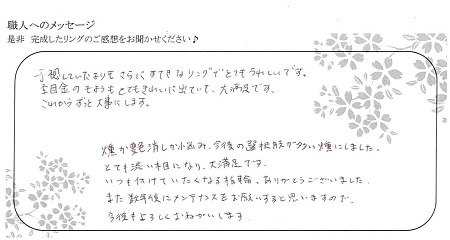 職人へのメッセージ
是非 完成したリングのご感想をお聞かせください♪
予想していたよりもさらにすてきなリングでとてもうれしいです。
杢目金のもようもとてもきれいに出ていて、大満足です。
これからずっと大事にします。
煙か艶消しか悩み、今後の選択肢が多い煙にしました。
とても渋い木目になり、大満足です。
いつも付けていたくなる指輪、ありがとうございました。
また数年後にメンテナンスをお願いすると思いますので、
今後もよろしくおねがいします。